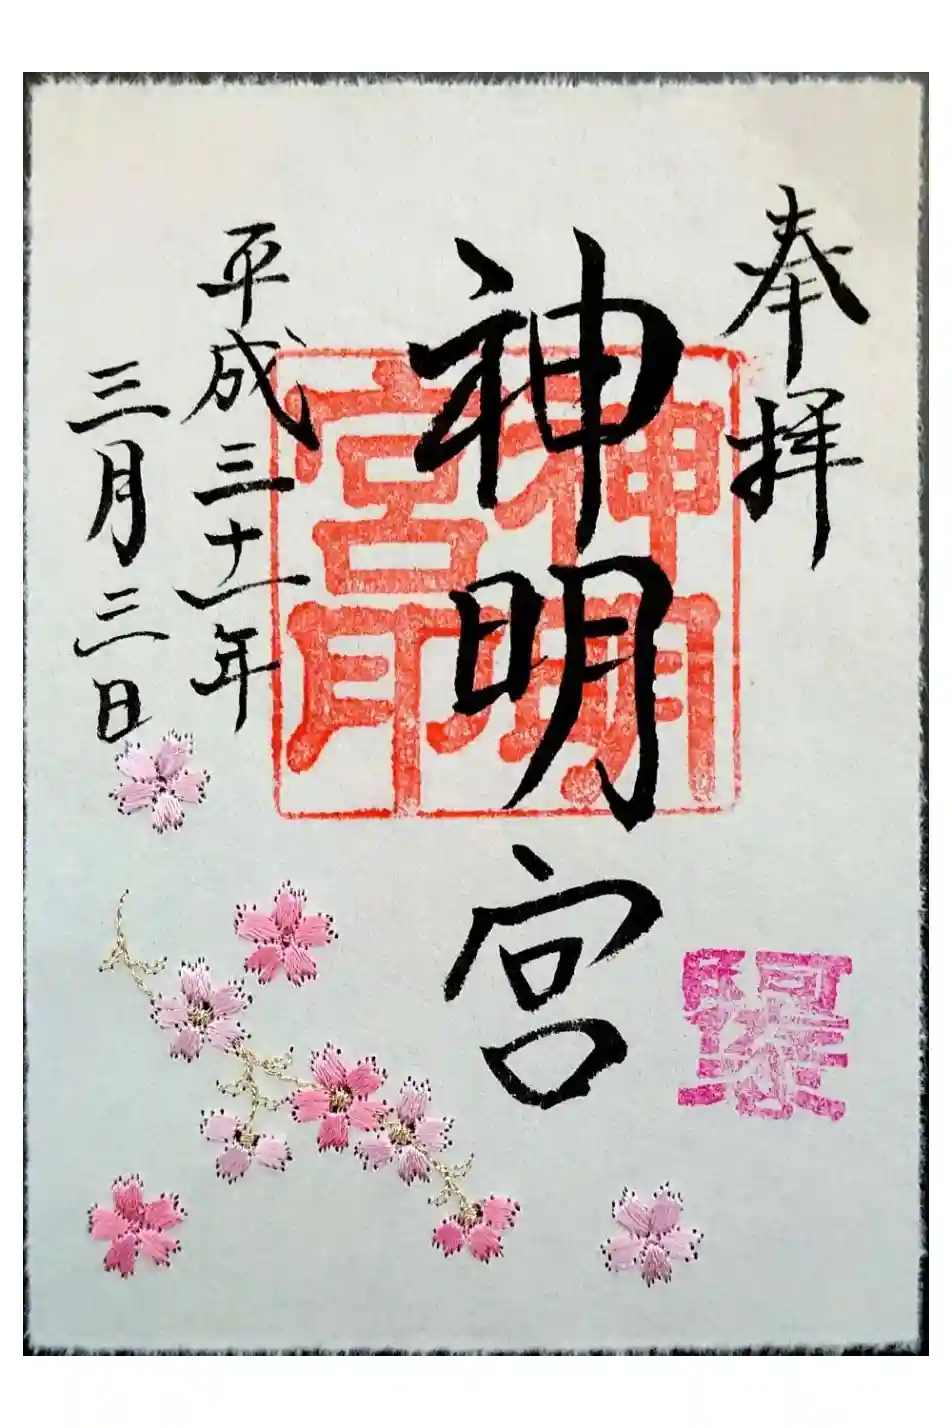 奉拝
神明宮
神明宮印
平成三十一年
三月三日